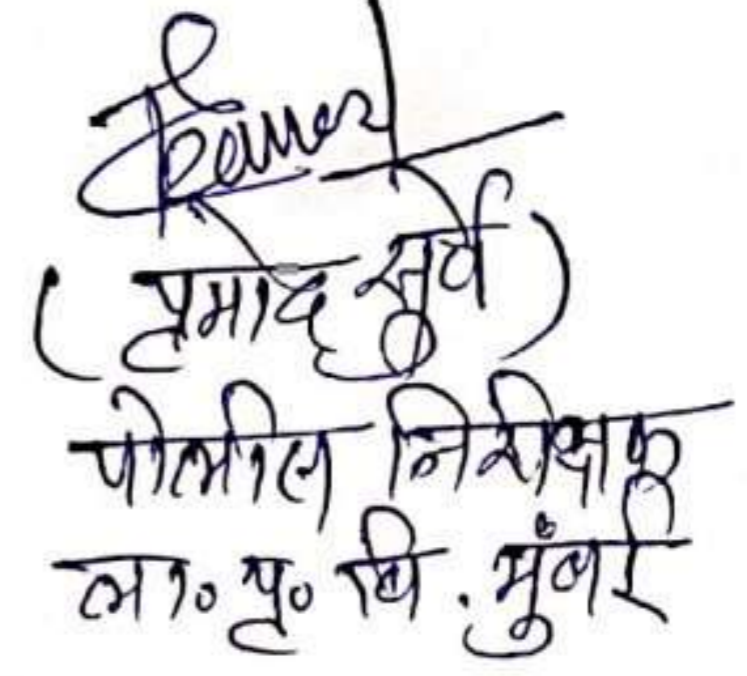 (प्रमोद सुर्वे)
पोलीस निरीक्षक
ला॰ प्र॰ वि. मुंबई